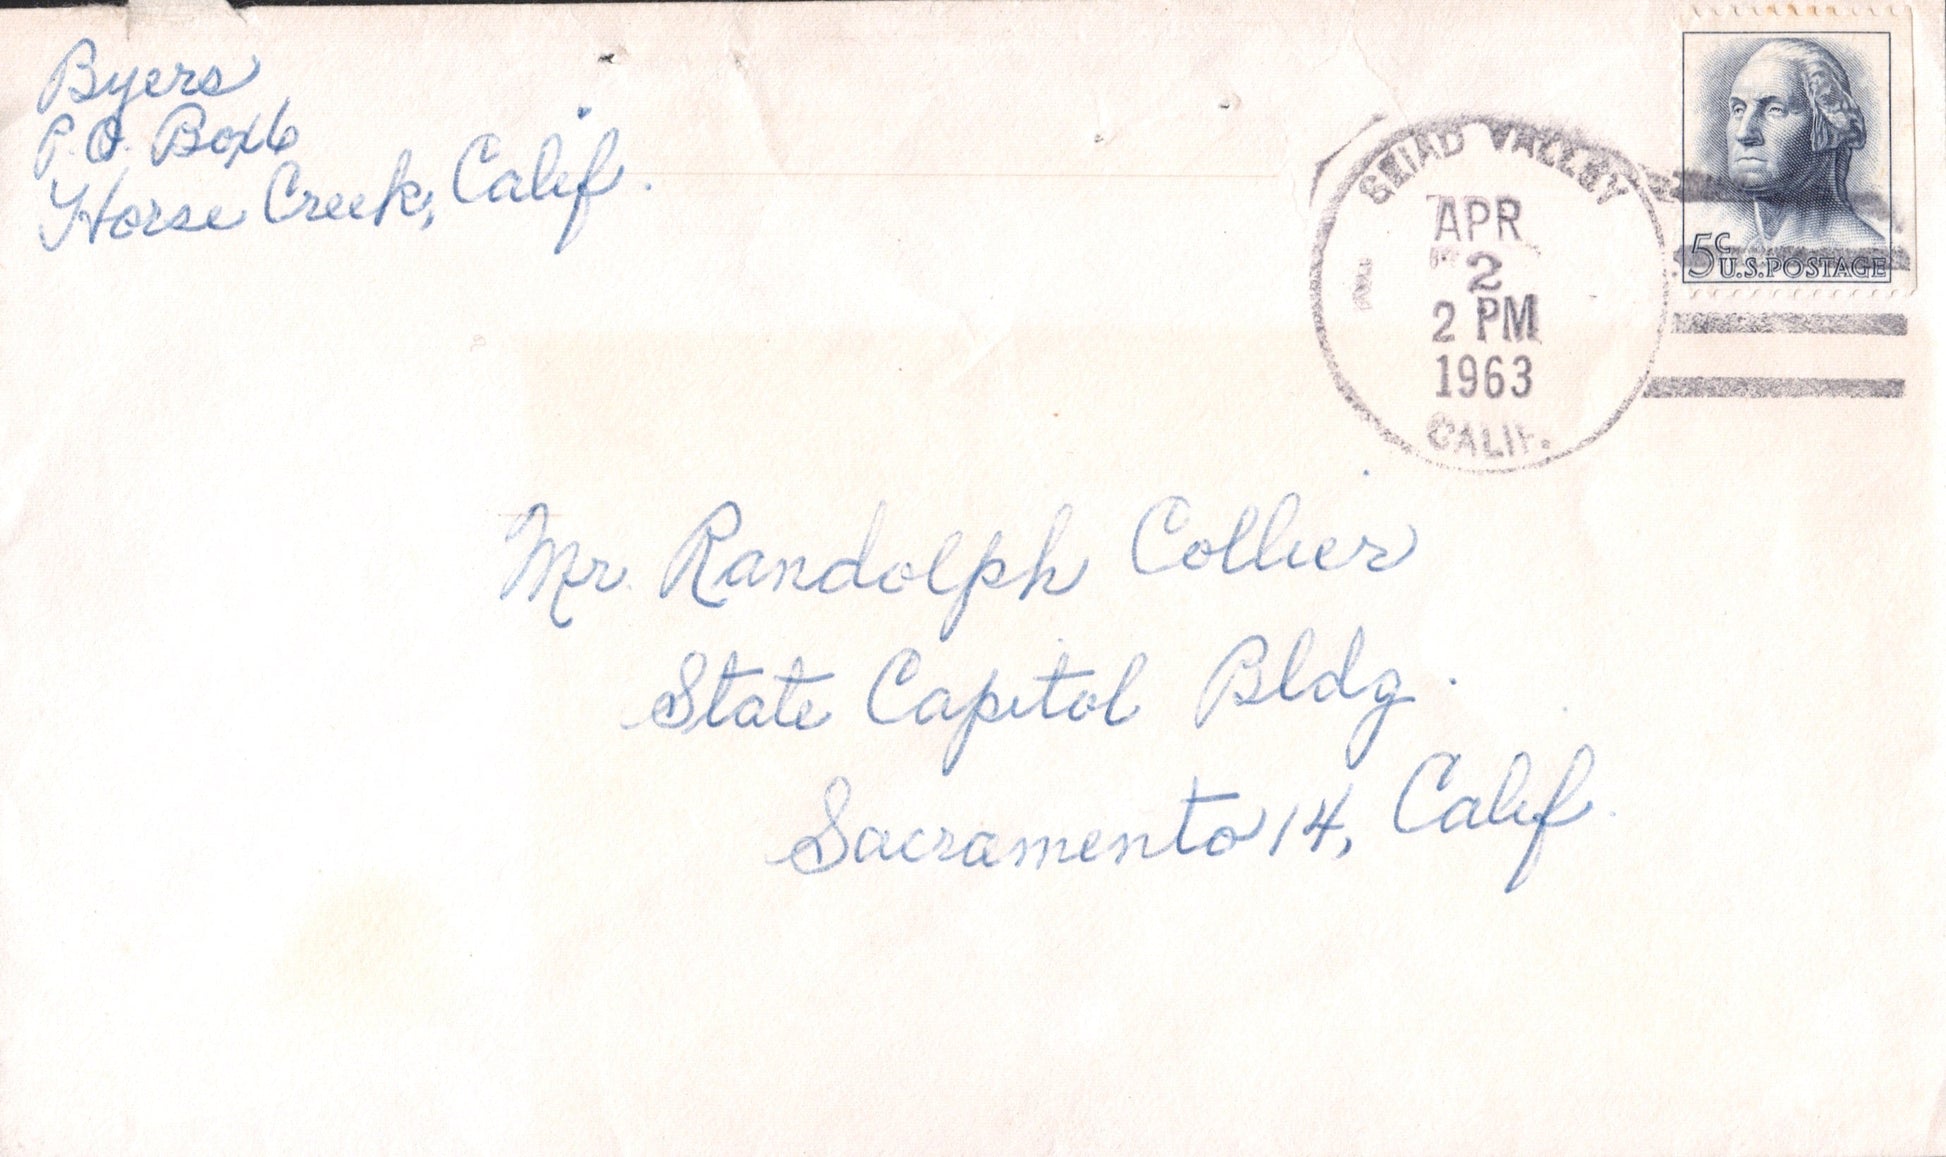 Byers
P.O. Box 6
Horse Creek, Calif.
SEIAD VALLEY
APR
2
2 PM
1963
CALIF.
5c
U.S. POSTAGE
Mr. Randolph Collier
State Capitol Bldg.
Sacramento 14, Calif.